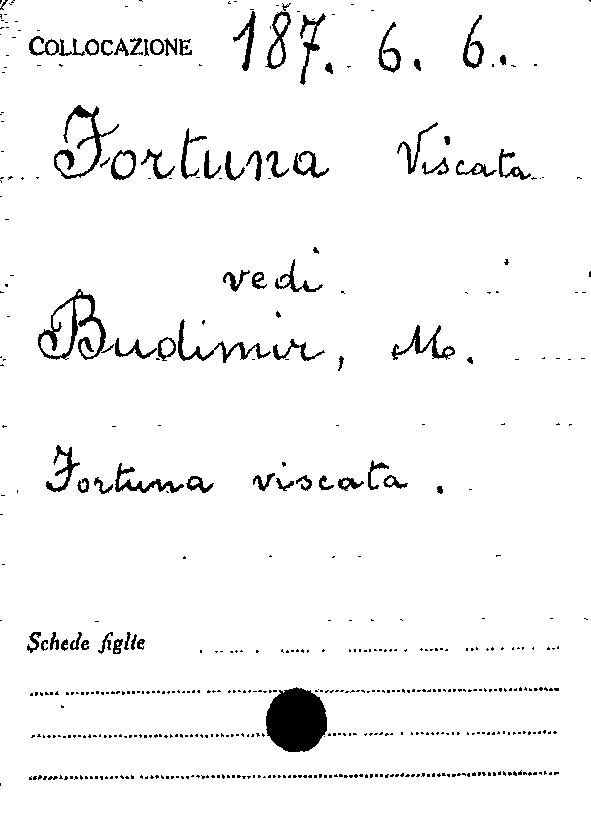 COLLOCAZIONE 187. 6. 6.
Fortuna Viscata
vedi
Budimir, M.
Fortuna viscata.
Schede figlie